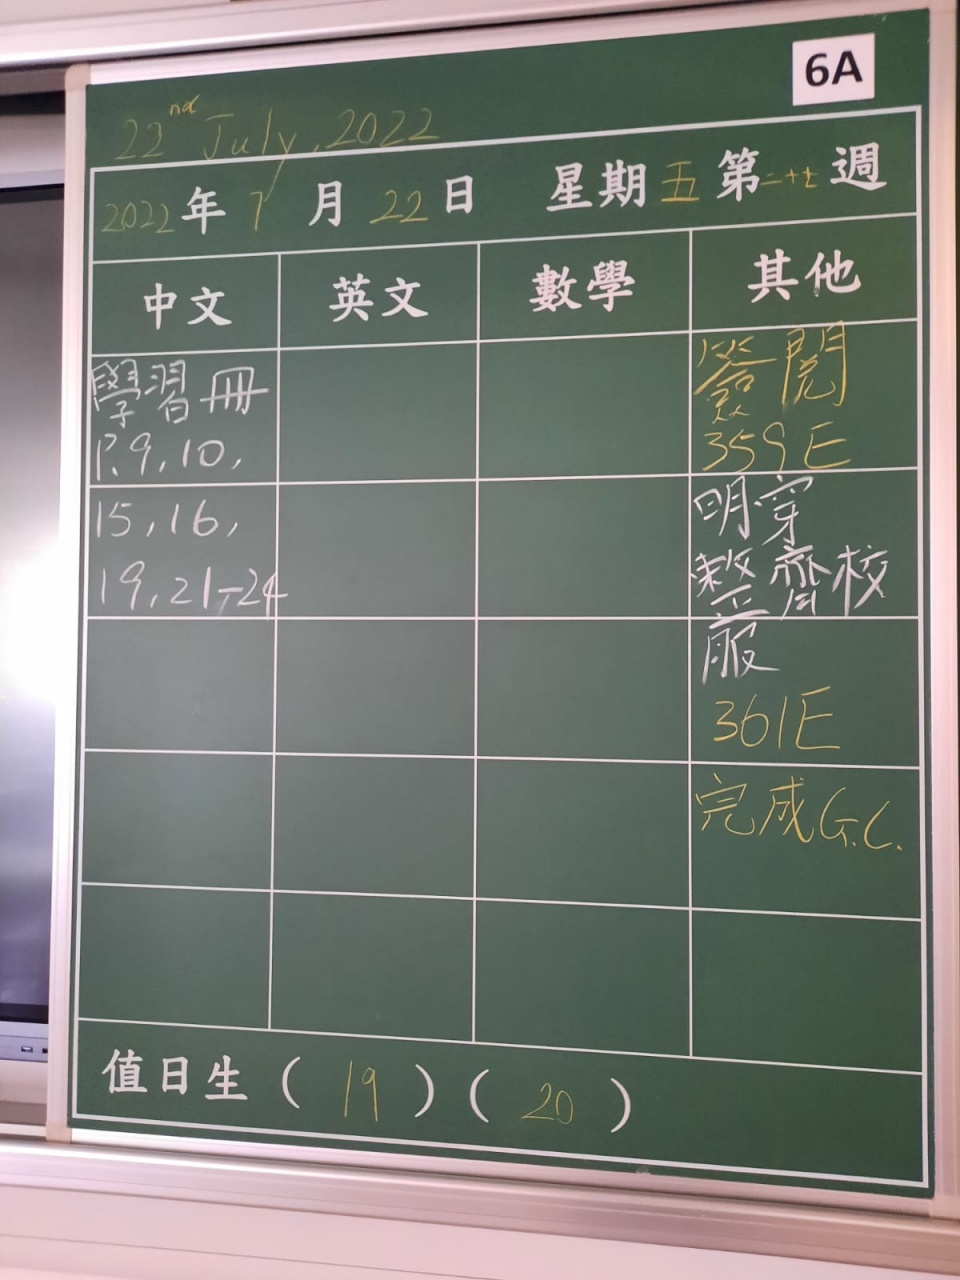 6A
22nd July, 2022
2022年7月22日 星期五第二十七週
中文 英文 數學 其他
學習冊
P.9,10,
15,16,
19,21-24
簽閱
359E
明穿
整齊校
服
361E
完成G.C.
值日生(19)(20)